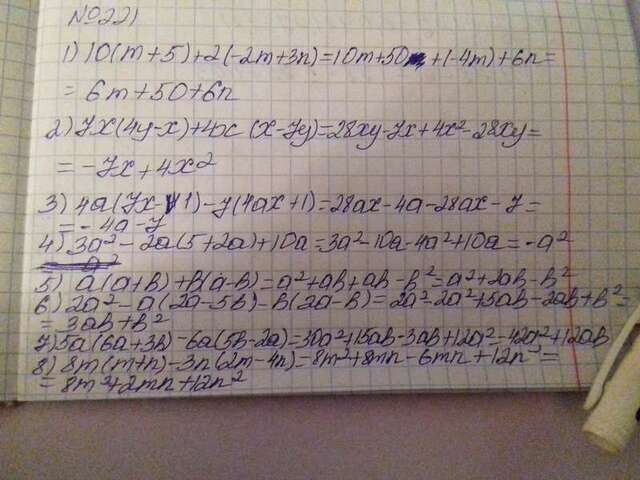 №221
1) 10(m+5)+2(-2m+3n)=10m+50+(-4m)+6n=
= 6m+50+6n
2) 7x(4y-x)+4x(x-7y)=28xy-7x+4x²-28xy=
= -7x+4x²
3) 4a(7x-1)-7(4ax+1)=28ax-4a-28ax-7=
= -4a-7
4) 3a²-2a(5+2a)+10a=3a²-10a-4a²+10a=-a²
5) a(a+b)+b(a-b)=a²+ab+ab-b²=a²+2ab-b²
6) 2a²-a(2a-5b)-b(2a-b)=2a²-2a²+5ab-2ab+b²=
= 3ab+b²
7) 5a(6a+3b)-6a(5b-2a)=30a²+15ab-3ab+12a²=42a²+12ab
8) 8m(m+n)-3n(2m-4n)=8m²+8mn-6mn+12n²=
= 8m²+2mn+12n²